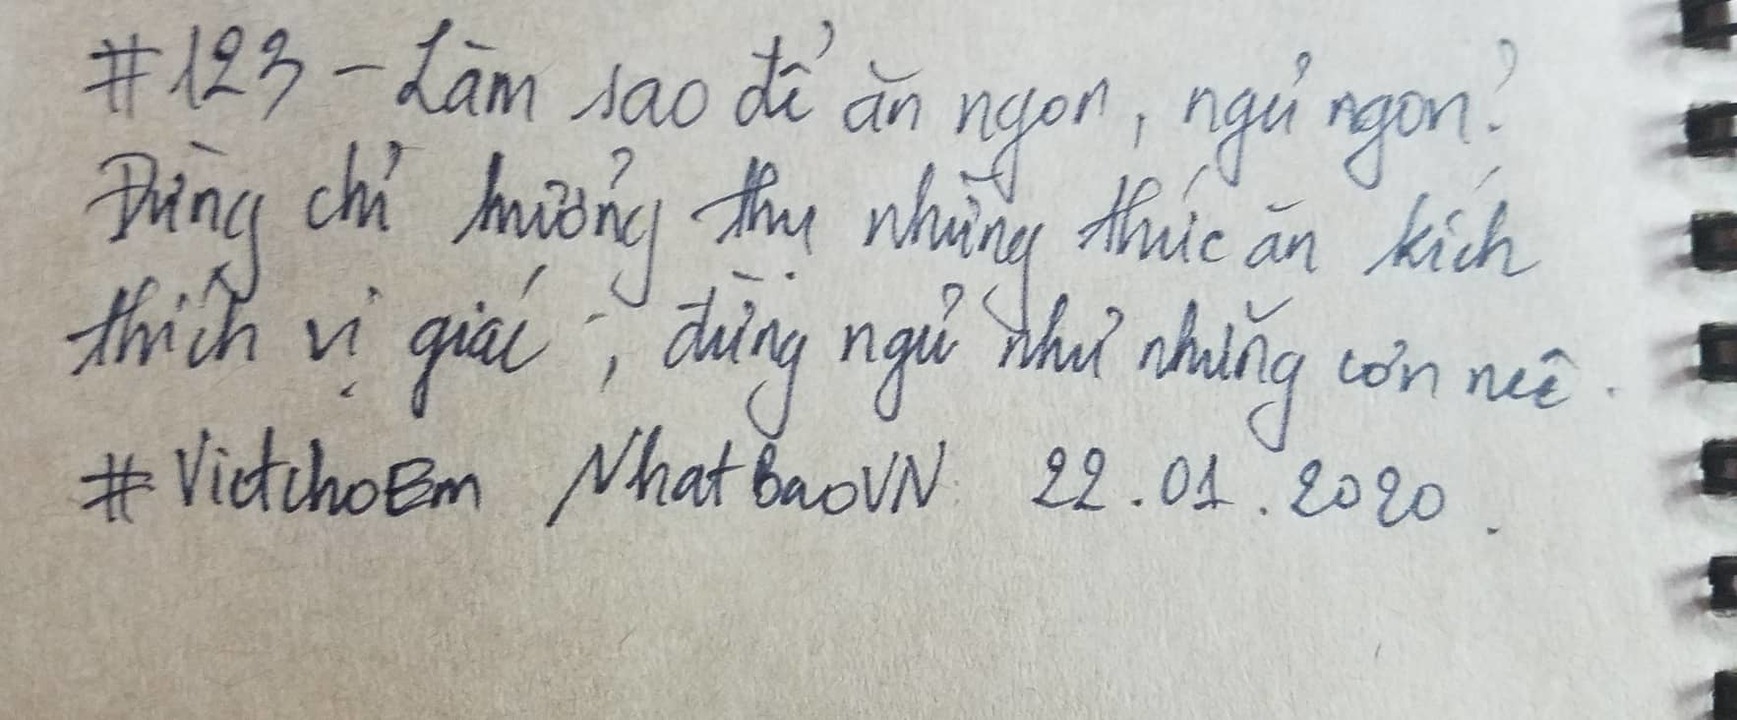 #123 - Làm sao để ăn ngon, ngủ ngon?
Đừng chỉ hưởng thụ những thức ăn kích
thích vị giác, đừng ngủ như những cơn mê.
#VietchoEm NhatBaoVN 22.01.2020.